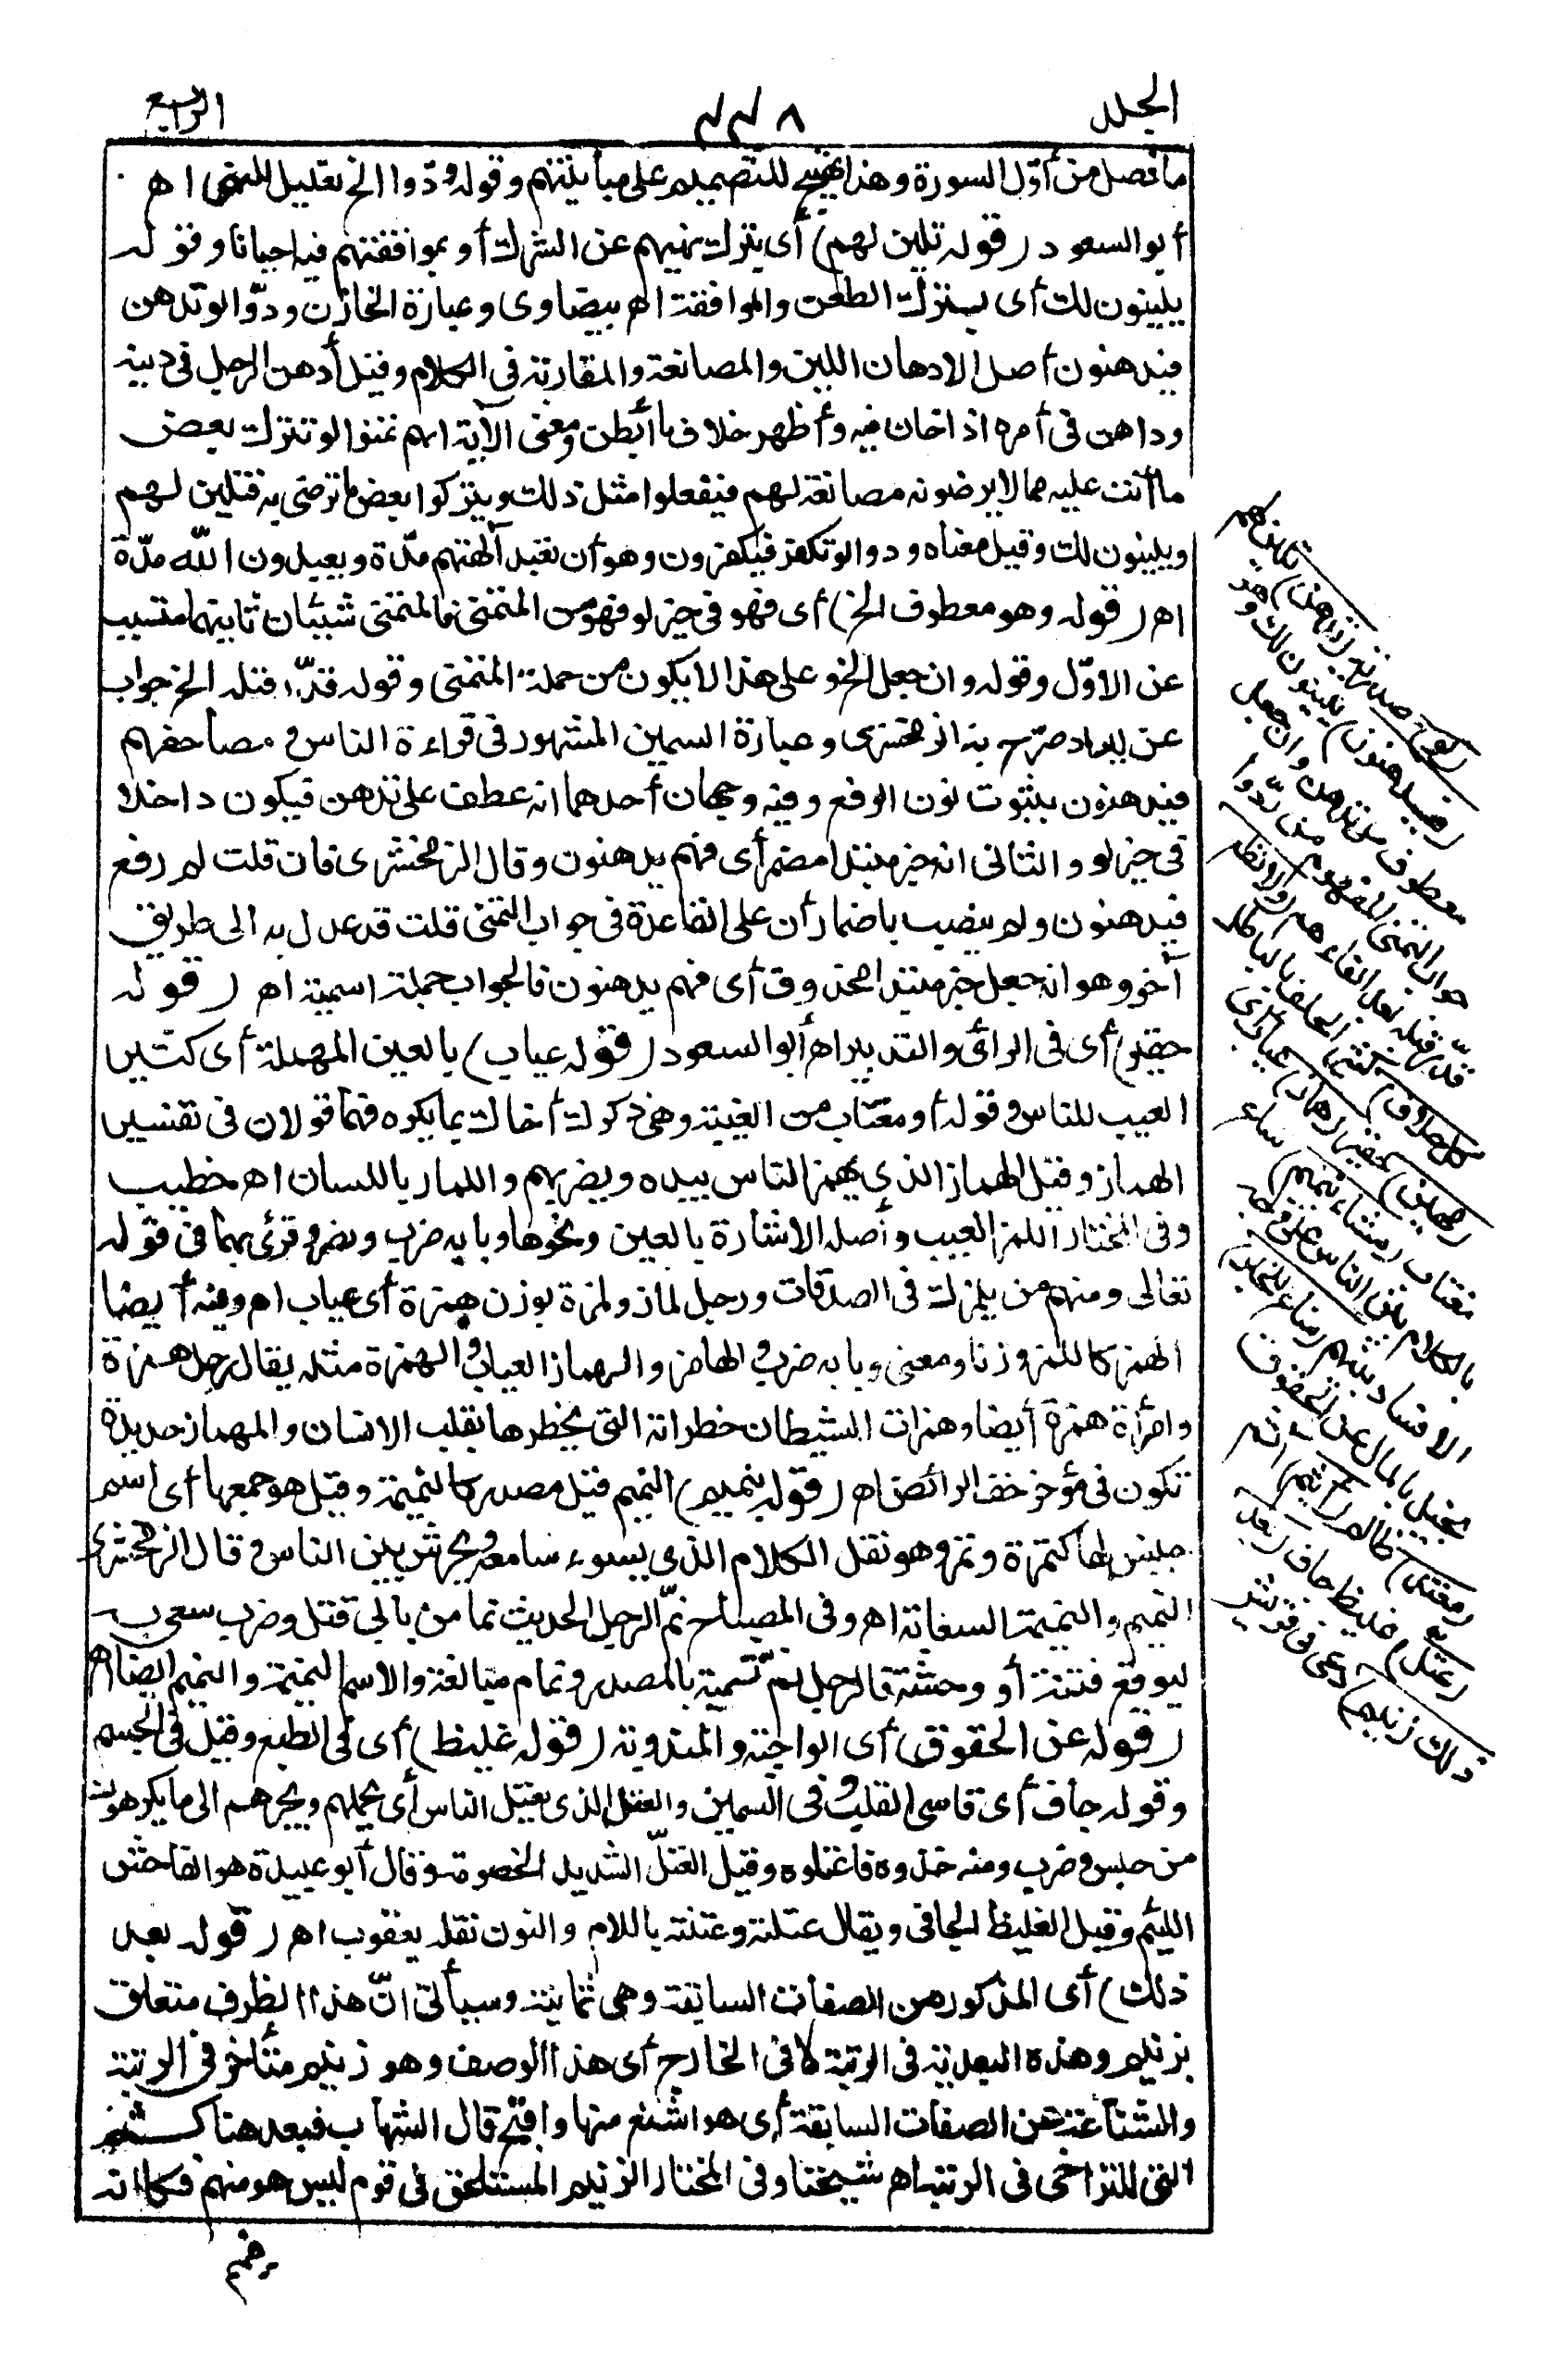 الجلد
٣٣٨
الرابع
ما فصل من أوّل السورة وهذا تهييج للتصميم على مباينتهم وقوله ودّوا الخ تعليل للنهى اه
أبو السعود (قوله تلين لهم) أى بترك نهيهم عن الشرك أو بموافقتهم فيه احيانا وقوله
يلينون لك أى بترك الطعن والموافقة اه بيضاوى وعبارة الخازن ودّوا لو تدهن
فيدهنون أصل الادهان اللين والمصانعة والمقاربة فى الكلام وقيل أدهن الرجل فى دينه
وداهن فى أمره اذا خان فيه وأظهر خلاف ما أبطن ومعنى الآية انهم تمنوا لو تترك بعض
ما أنت عليه مما لا يرضونه مصانعة لهم فيفعلوا مثل ذلك ويتركوا بعض ما ترضى به فتلين لهم
ويلينون لك وقيل معناه ودوا لو تكفر فيكفرون وهو أن تعبد آلهتهم مدّة ويعبدون الله مدّة
اه (قوله وهو معطوف الخ) أى فهو فى حيز لو فهو من المتمنى فالمتمنى شيئان ثانيهما متسبب
عن الاوّل وقوله وان جعل الخ وعلى هذا لا يكون من جملة المتمنى وقوله قدّر قبله الخ جواب
عن ايراد صرّح به الزمخشرى وعبارة السمين المشهور فى قراءة الناس ومصاحفهم
فيدهنون بثبوت نون الرفع وفيه وجهان أحدهما انه عطف على تدهن فيكون داخلا
فى حيز لو والثانى انه خبر مبتدا مضمر أى فهم يدهنون وقال الزمخشرى فان قلت لم رفع
فيدهنون ولم ينصب باضمار أن على القاعدة فى جواب التمنى قلت قد عدل به الى طريق
آخر وهو انه جعل خبر مبتدا محذوف أى فهم يدهنون فالجواب جملة اسمية اه (قوله
حقير) أى فى الرأى والتدبير اه أبو السعود (قوله عياب) بالعين المهملة أى كثير
العيب للناس وقوله أو مغتاب من الغيبة وهى ذكرك أخاك بما يكره فهما قولان فى تفسير
الهماز وقيل الهماز الذى يهمز الناس بيده ويضربهم واللماز باللسان اه خطيب
وفى المختار اللمز العيب وأصله الاشارة بالعين ونحوها وبابه ضرب ونصر وقرئ بهما فى قوله
تعالى ومنهم من يلمزك فى الصدقات ورجل لماز ولمزة بوزن همزة أى عياب اه وفيه أيضا
الهمز كاللمز وزنا ومعنى وبابه ضرب والهامز والهماز العياب والهمزة مثله يقال رجل همزة
وامرأة همزة أيضا وهمزات الشيطان خطراته التى يخطرها بقلب الانسان والمهماز حديدة
تكون فى مؤخر خف الرائض اه (قوله بنميم) النميم قيل مصدر كالنميمة وقيل هو جمعها أى اسم
جنس لها كتمرة وتمر وهو نقل الكلام الذى يسوء سامعه ويحرش بين الناس وقال الزمخشرى
النميم والنميمة السعاية اه وفى المصباح نمّ الرجل الحديث نما من بابى قتل وضرب سعى به
ليوقع فتنة أو وحشة فالرجل نمّ تسمية بالمصدر ونمام مبالغة والاسم النميمة والنميم أيضا اه
(قوله عن الحقوق) أى الواجبة والمندوبة (قوله غليظ) أى فى الطبع وقيل فى الجسم
وقوله جاف أى قاسى القلب وفى السمين والعتل الذى يعتل الناس أى يحملهم ويجرهم الى ما يكرهون
من حبس وضرب ومنه خذوه فاعتلوه وقيل العتلّ الشديد الخصومة وقال أبو عبيدة هو الفاحش
اللئيم وقيل الغليظ الجافى ويقال عتلته وعتنته باللام والنون نقله يعقوب اه (قوله بعد
ذلك) أى المذكور من الصفات السابقة وهى ثمانية وسيأتى انّ هذا الظرف متعلق
بزنيم وهذه البعدية فى الرتبة لا فى الخارج أى هذا الوصف وهو زنيم متأخر فى الرتبة
والشناعة عن الصفات السابقة أى هو اشنع منها واقبح قال الشهاب فبعد هنا كثم
التى للتراخى فى الرتبة اه شيخنا وفى المختار الزنيم المستلحق فى قوم ليس هو منهم فكأنه
(فيدهنون) يلينون لك وهو
معطوف على تدهن وان جعل
جواب التمنى المفهوم من ودّوا
قدّر قبله بعد الفاء هم (ولا تطع
كل حلاف) كثير الحلف بالباطل
(مهين) حقير (هماز) عياب أى
مغتاب (مشاء بنميم) ساع
بالكلام بين الناس على وجه
الافساد بينهم (مناع للخير)
بخيل بالمال عن الحقوق
(معتد) ظالم (أثيم) آثم
(عتل) غليظ جاف (بعد
ذلك زنيم) دعى فى قريش